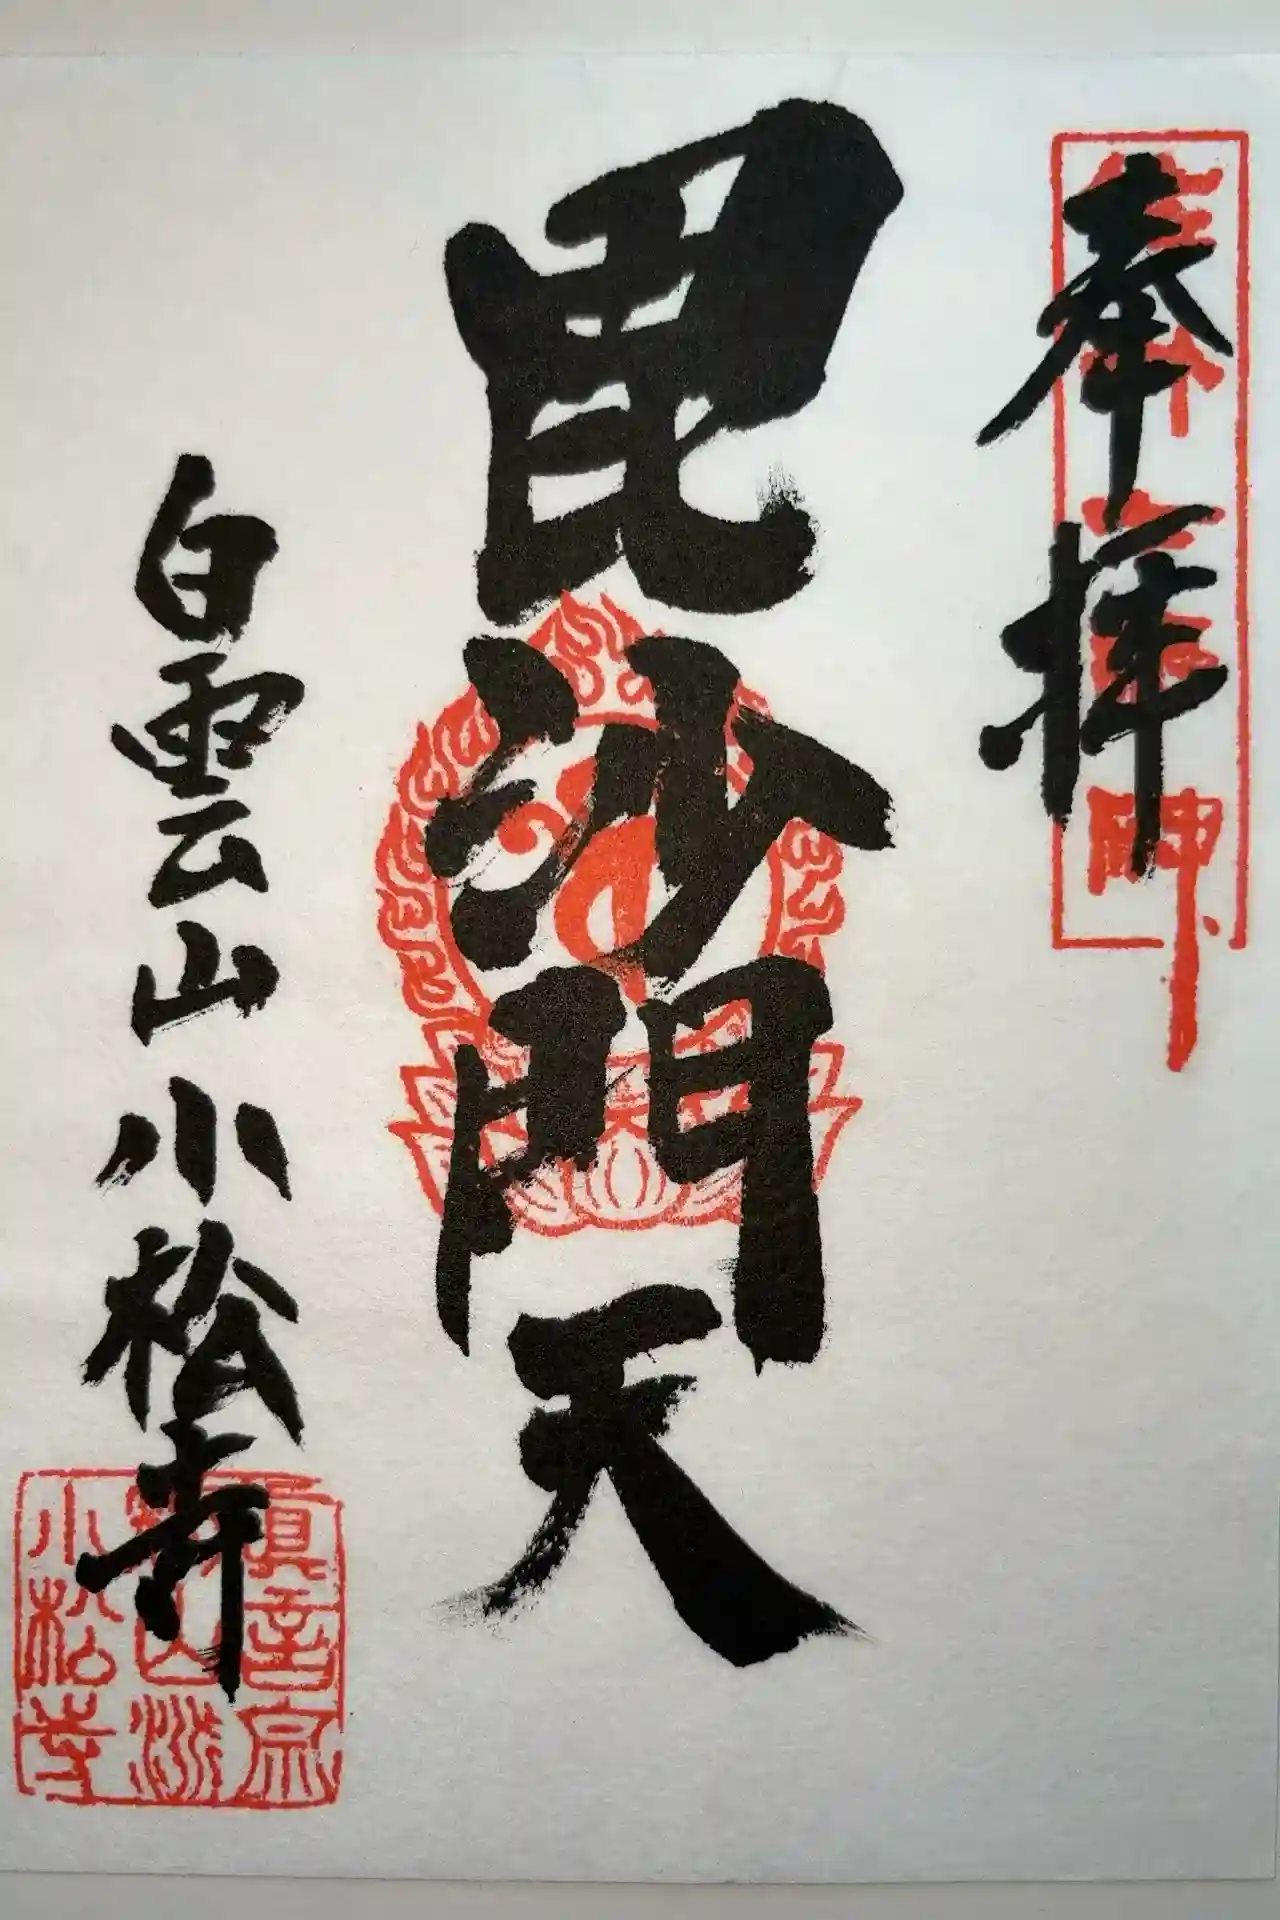 奉拝
毘沙門天
白雲山小松寺
真言宗
智山派
小松寺